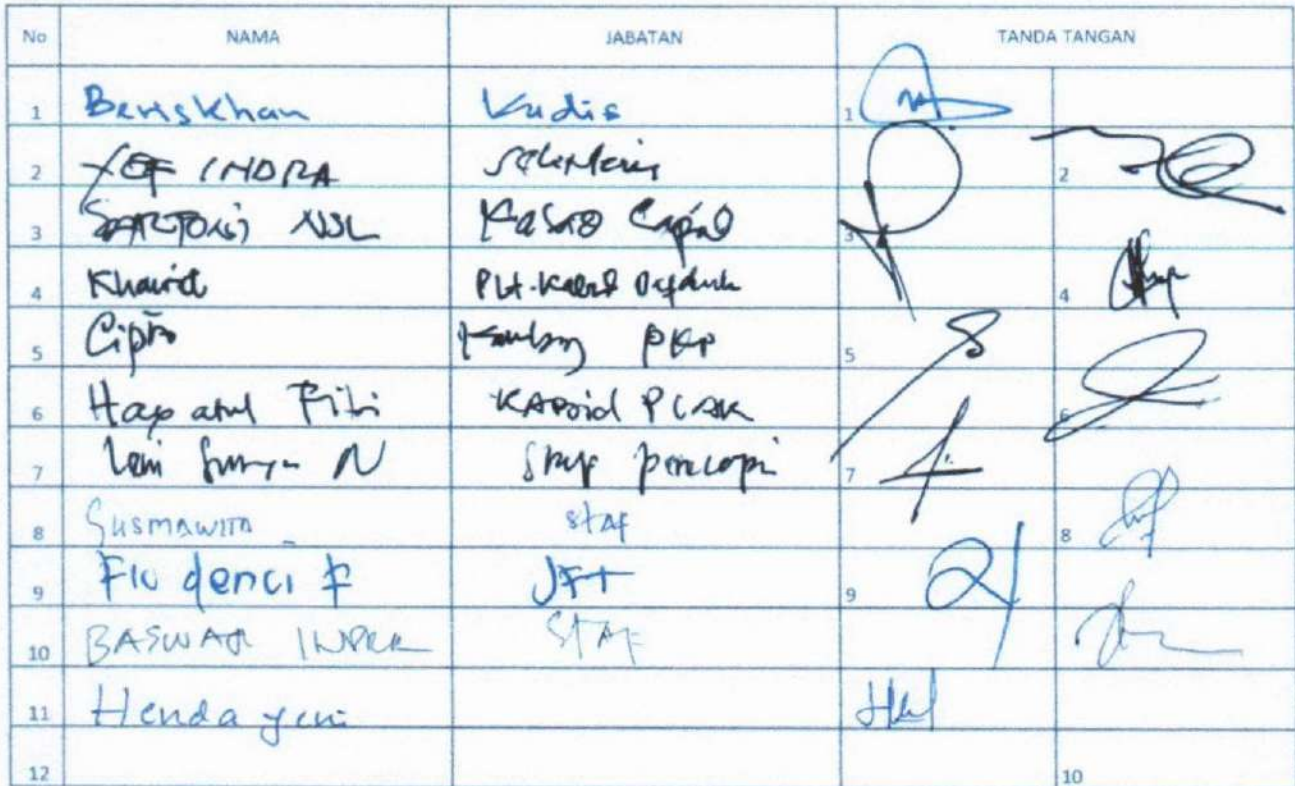 No NAMA JABATAN TANDA TANGAN
1 Beriskhan Kadis 1
2 YOF INDRA Sekretaris 2
3 NSL Kabid Capil 3
4 Khairid Plt. Kabid Dafduk 4
5 Cipto PKP 5
6 Hayatul Fitri KABid PIAK 6
7 Leni N Staf 7
8 SUSMAWITA staf 8
9 denci F JFT 9
10 BASWAR INDRA STAF
11 Henda yeni
12 10